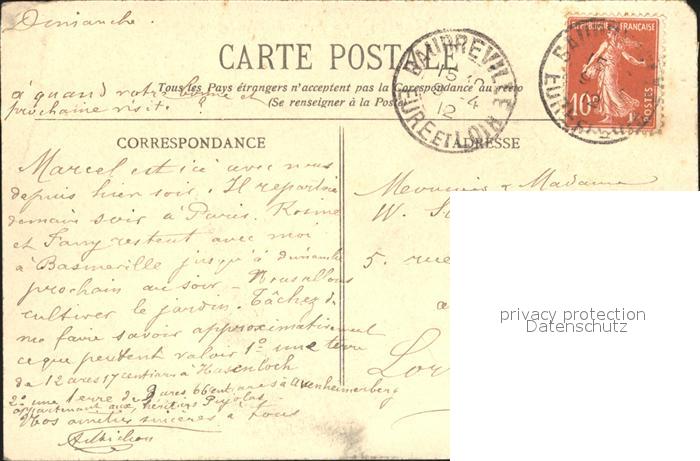 Dimanche
CARTE POSTALE
Tous les Pays étrangers n'acceptent pas la Correspondance au recto
(Se renseigner à la Poste)
à quand votre bonne et
prochaine visite ?
BAUDREVILLE
15
4
12
EURE ET LOIR
REPUBLIQUE FRANÇAISE
10c
POSTES
CORRESPONDANCE
ADRESSE
Marcel est ici avec nous
depuis hier soir. Il repart
demain soir à Paris. Rosine
et Fanny restent avec moi
à jusqu'à dimanche
prochain au soir – Nous allons
cultiver le jardin. Tâchez de
me faire savoir approximativement
ce que peuvent valoir 1º une terre
de 12 ares 17 centiares à Hasenloch
2º une terre de ares 66 centiares à
appartenant aux héritiers
Nos amitiés sincères à tous
Monsieur & Madame
W. S
5. rue
a
Lor
privacy protection
Datenschutz